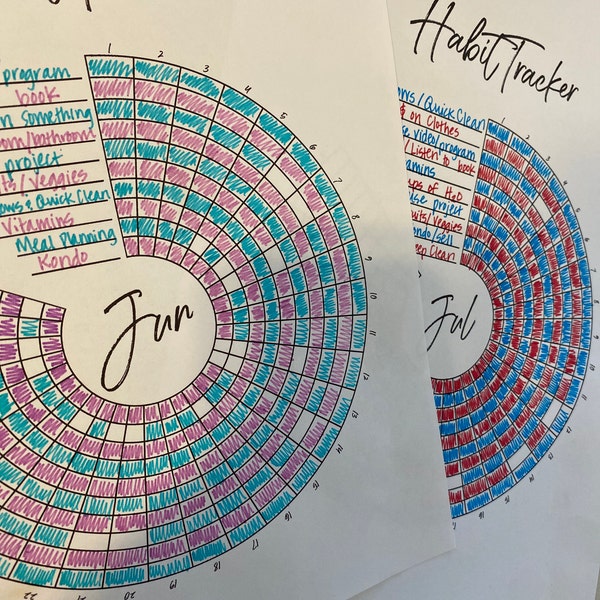 program
book
something
project
Veggies
& Quick Clean
Vitamins
Meal Planning
Kondo
Jun
1
2
3
4
5
6
7
8
9
10
11
12
13
14
15
16
17
18
19
20
21
22
Habit Tracker
/ Quick Clean
on Clothes
video/program
Listen to book
amins
of H2O
project
uits/Veggies
ondo/sell
eep Clean
Jul
1
2
3
4
5
6
7
8
9